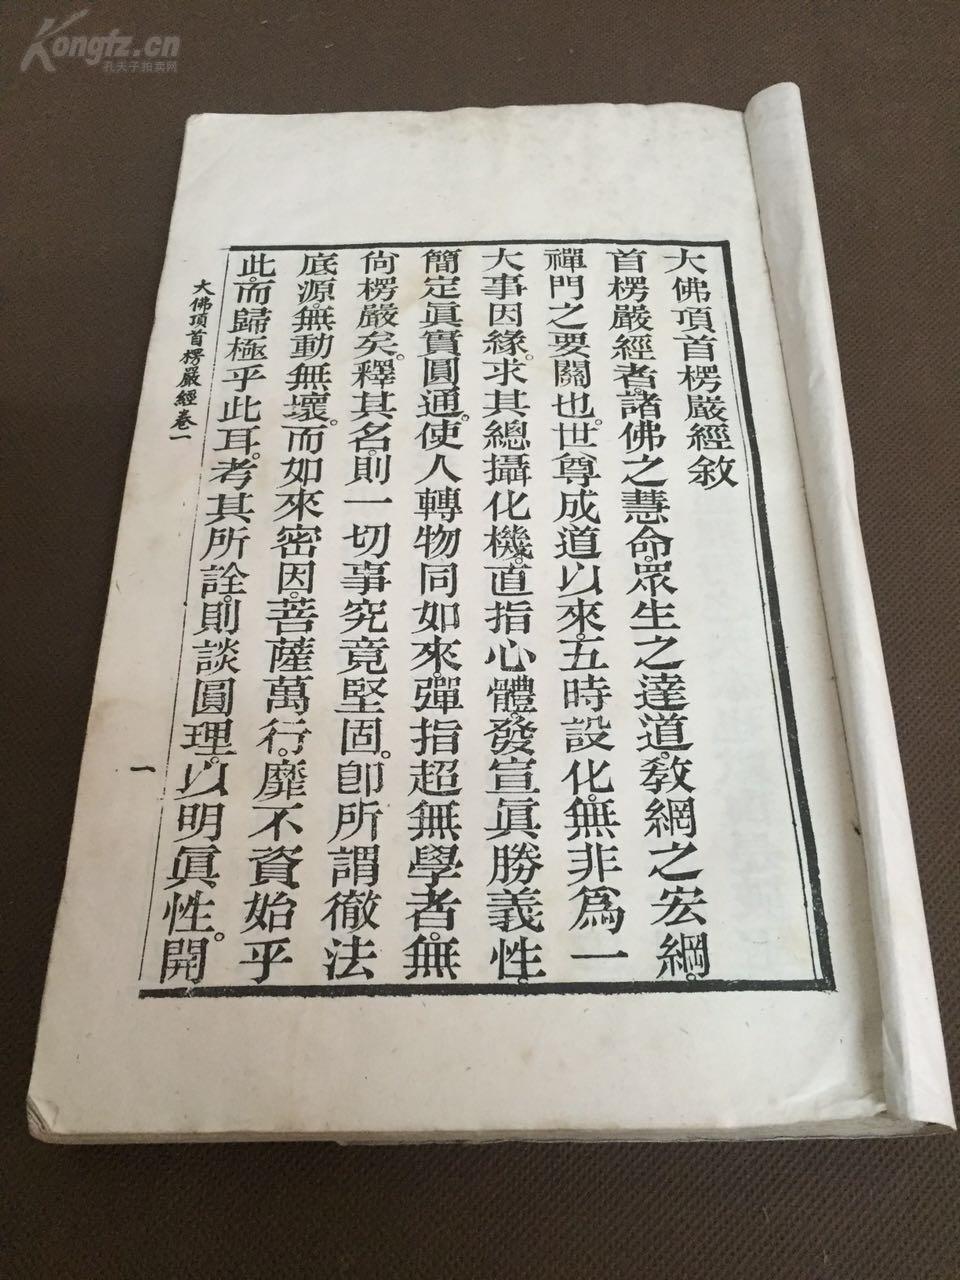 Kongfz.cn
孔夫子拍卖网
大佛頂首楞嚴經敘
首楞嚴經者。諸佛之慧命。眾生之達道。教綱之宏綱。
禪門之要關也。世尊成道以來。五時設化。無非為一
大事因緣。求其總攝化機。直指心體。發宣真勝義性。
簡定真實圓通。使人轉物同如來。彈指超無學者。無
尚楞嚴矣。釋其名。則一切事究竟堅固。卽所謂徹法
底源。無動無壞。而如來密因。菩薩萬行。靡不資始乎
此。而歸極乎此耳。考其所詮。則談圓理。以明眞性。開
大佛頂首楞嚴經卷一
一